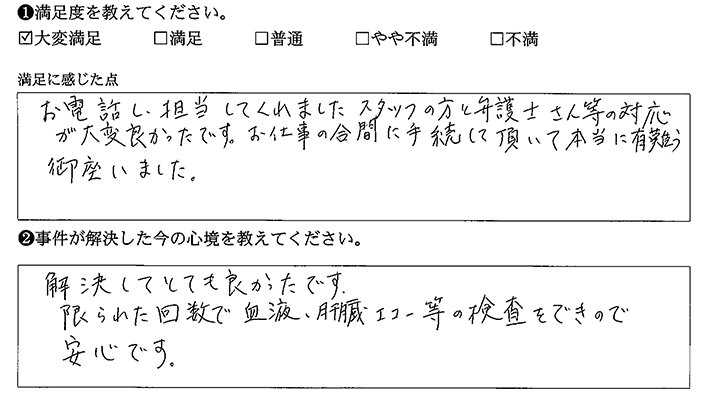 ❶満足度を教えてください。
☑大変満足 □満足 □普通 □やや不満 □不満
満足に感じた点
お電話し、担当してくれましたスタッフの方と弁護士さん等の対応
が大変良かったです。お仕事の合間に手続して頂いて本当に有難う
御座いました。
❷事件が解決した今の心境を教えてください。
解決してとても良かったです。
限られた回数で血液、肝臓エコー等の検査をできので
安心です。